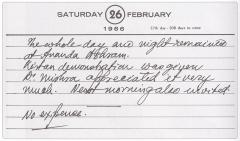 SATURDAY 26 FEBRUARY
1966
57th day - 308 days to come
The whole day and night remained
at Ananda Ashram.
Kirtan demonstration was given
Dr. Mishra appreciated it very
much. Next morning also invited
No expense.